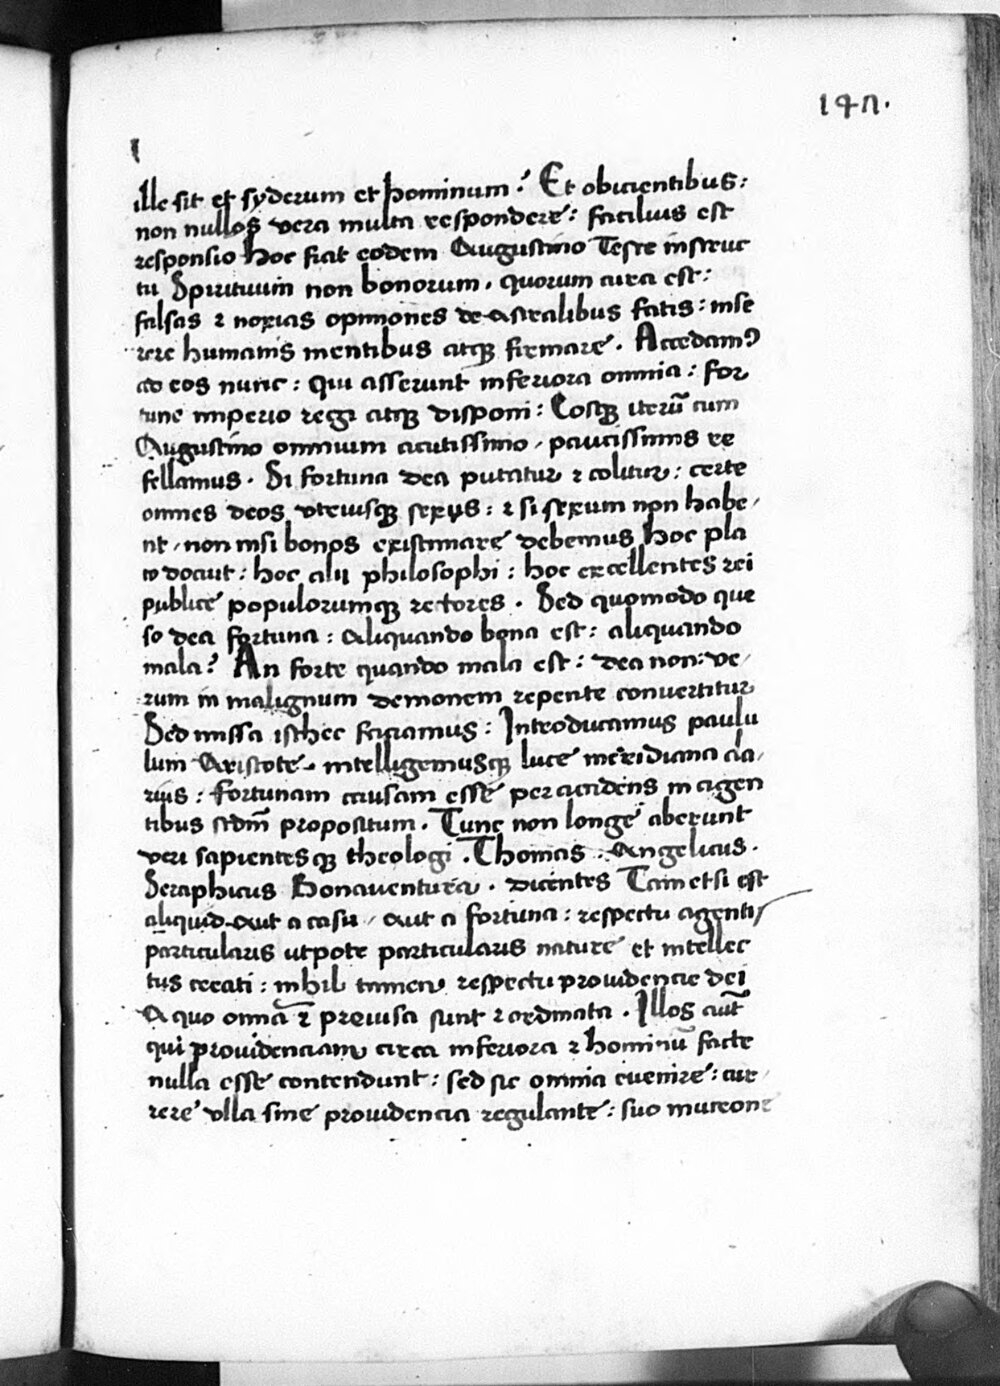 147.
ille sit et syderum et hominum? Et obicientibus:
non nullos vera multa respondere: facilius est
responsio hoc fiat eodem Augustino Teste instruc
tu Spirituum non bonorum. quorum cura est:
falsas ⁊ noxias opiniones de astralibus fatis: inse
rere humanis mentibus atqꝫ firmare. Accedamꝰ
ad eos nunc: qui asserunt inferiora omnia: for
tune imperio regi atqꝫ disponi: Eosqꝫ iterũ cum
Augustino omnium acutissimo, paucissimis re
fellamus. Si fortuna dea putatur ⁊ colitur: certe
omnes deos utriusqꝫ sexus: ⁊ si sexum non habe,
nt, non nisi bonos existimare debemus hoc pla
to docuit: hoc alii philosophi: hoc excellentes rei
publice populorumqꝫ rectores. Sed quomodo que
so dea fortuna: aliquando bona est: aliquando
mala? An forte quando mala est: dea non: ve,
rum in malignum demonem repente convertitur
Sed missa isthec faciamus: Introducamus paulu
lum Aristote. intelligemusqꝫ luce meridiana cla,
rius: fortunam causam esse per accidens in agen
tibus scdm̃ propositum. Tunc non longe aberunt
veri sapientesqꝫ theologi. Thomas. Angelicus.
Seraphicus Bonaventura. dicentes Tametsi est
aliquid aut a casu, aut a fortuna: respectu agentis
particularis utpote particularis nature et intellec
tus creati: nihil tamen respectu providencie dei
A quo omĩa ⁊ previsa sunt ⁊ ordinata. Illos aut̃
qui providenciam circa inferiora ⁊ hominũ facte
nulla esse contendunt: sed sic omnia evenire: cur,
rere ulla sine providencia regulante: suo mucrone